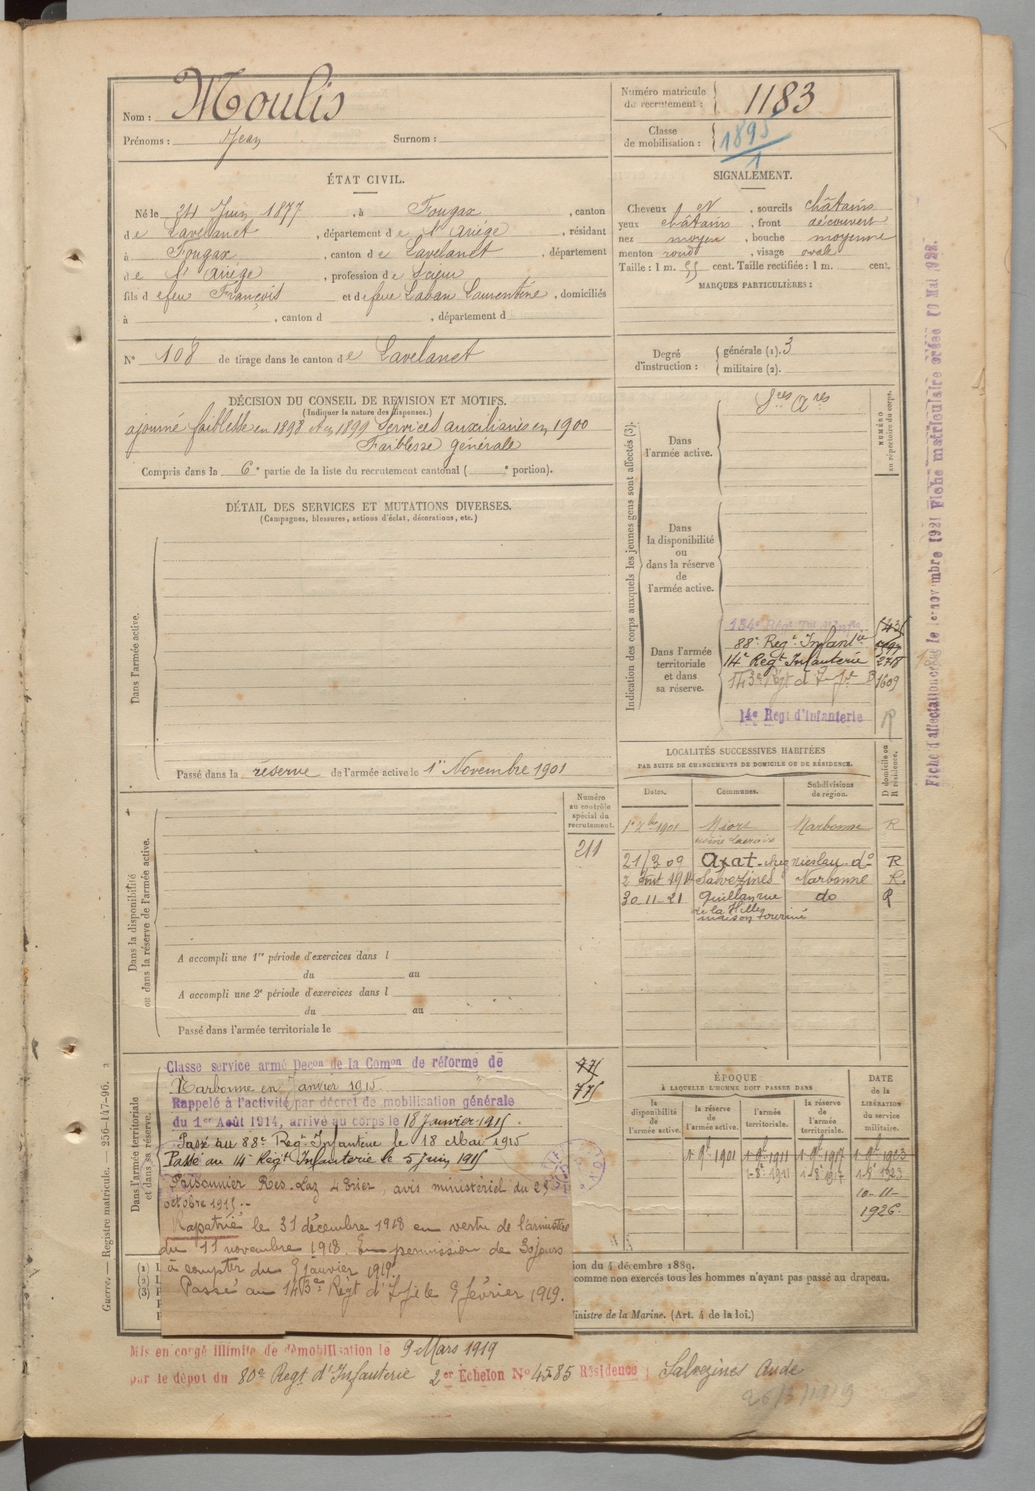 Nom : Moulis
Prénoms : Jean Surnom :
Numéro matricule de recrutement : 1183
Classe de mobilisation : 1895
1
ÉTAT CIVIL.
Né le 24 Juin 1877, à Fougax, canton
de Lavelanet, département de l'Ariège, résidant
à Fougax, canton de Lavelanet, département
de l'Ariège, profession de Scieur
fils de feu François et de feue Laban Laurentine, domiciliés
à , canton d , département d
N° 108 de tirage dans le canton de Lavelanet
SIGNALEMENT.
Cheveux N, sourcils châtains
yeux châtains, front découvert
nez moyen, bouche moyenne
menton rond, visage ovale
Taille : 1 m. 55 cent. Taille rectifiée : 1 m. cent.
MARQUES PARTICULIÈRES :
Degré d'instruction : générale (1). 3
militaire (2).
DÉCISION DU CONSEIL DE REVISION ET MOTIFS.
(Indiquer la nature des dispenses.)
ajourné faiblesse en 1898 et en 1899 Services auxiliaires en 1900
Faiblesse générale
Compris dans la 6e partie de la liste du recrutement cantonal ( e portion).
DÉTAIL DES SERVICES ET MUTATIONS DIVERSES.
(Campagnes, blessures, actions d'éclat, décorations, etc.)
Dans l'armée active.
Passé dans la réserve de l'armée active le 1er Novembre 1901
Dans la disponibilité ou dans la réserve de l'armée active.
Numéro au contrôle spécial du recrutement.
211
A accompli une 1re période d'exercices dans l
du au
A accompli une 2e période d'exercices dans l
du au
Passé dans l'armée territoriale le
Dans l'armée territoriale et dans sa réserve.
775
775
Classé service armé Décon de la Comon de réforme de
Narbonne en Janvier 1915
Rappelé à l'activité par décret de mobilisation générale
du 1er Août 1914, arrivé au corps le 18 Janvier 1915
Passé au 88e Régt Infanterie le 18 Mai 1915
Passé au 14e Régt Infanterie le 5 juin 1915
Prisonnier avis ministériel du 25
octobre 1915.-
Rapatrié le 31 décembre 1918 en vertu de l'armistice
du 11 novembre 1918. En permission de 30 jours
à compter du 9 janvier 1919.
Passé au 143e Régt d'Infie le 9 février 1919.
Indication des corps auxquels les jeunes gens sont affectés (3).
NUMÉRO au répertoire du corps.
Dans l'armée active.
Sces Ares
Dans la disponibilité ou dans la réserve de l'armée active.
Dans l'armée territoriale et dans sa réserve.
88e Régt Infanterie
14e Régt Infanterie 2718
143e Régt d'Infie 1609
14e Régt d'Infanterie R
LOCALITÉS SUCCESSIVES HABITÉES
PAR SUITE DE CHANGEMENTS DE DOMICILE OU DE RÉSIDENCE.
Dates. Communes. Subdivisions de région. D domicile ou R résidence.
1901 Narbonne R
21/3 09 Axat do R
2 1914 Salvezines Narbonne R
30-11-21 Quillan rue do R
de la
maison
ÉPOQUE
À LAQUELLE L'HOMME DOIT PASSER DANS
la disponibilité de l'armée active. la réserve de l'armée active. l'armée territoriale. la réserve de l'armée territoriale. DATE de la LIBÉRATION du service militaire.
1-9bre 1901 1-9bre 1911 1-9bre 1917 1-9bre 1923
10-11-
1926.
ion du 4 décembre 1889.
comme non exercés tous les hommes n'ayant pas passé au drapeau.
Ministre de la Marine. (Art. 4 de la loi.)
Mis en congé illimité de démobilisation le 9 Mars 1919
par le dépôt du 80e Régt d'Infanterie 2er Échelon N° 4585 Résidence : Salvezines Aude
26/3/1919
Guerre. — Registre matricule. — 256-147-96.
Fiche d'affectation créée le 1er novembre 1921 Fiche matriculaire créée 19 Mai 1922.